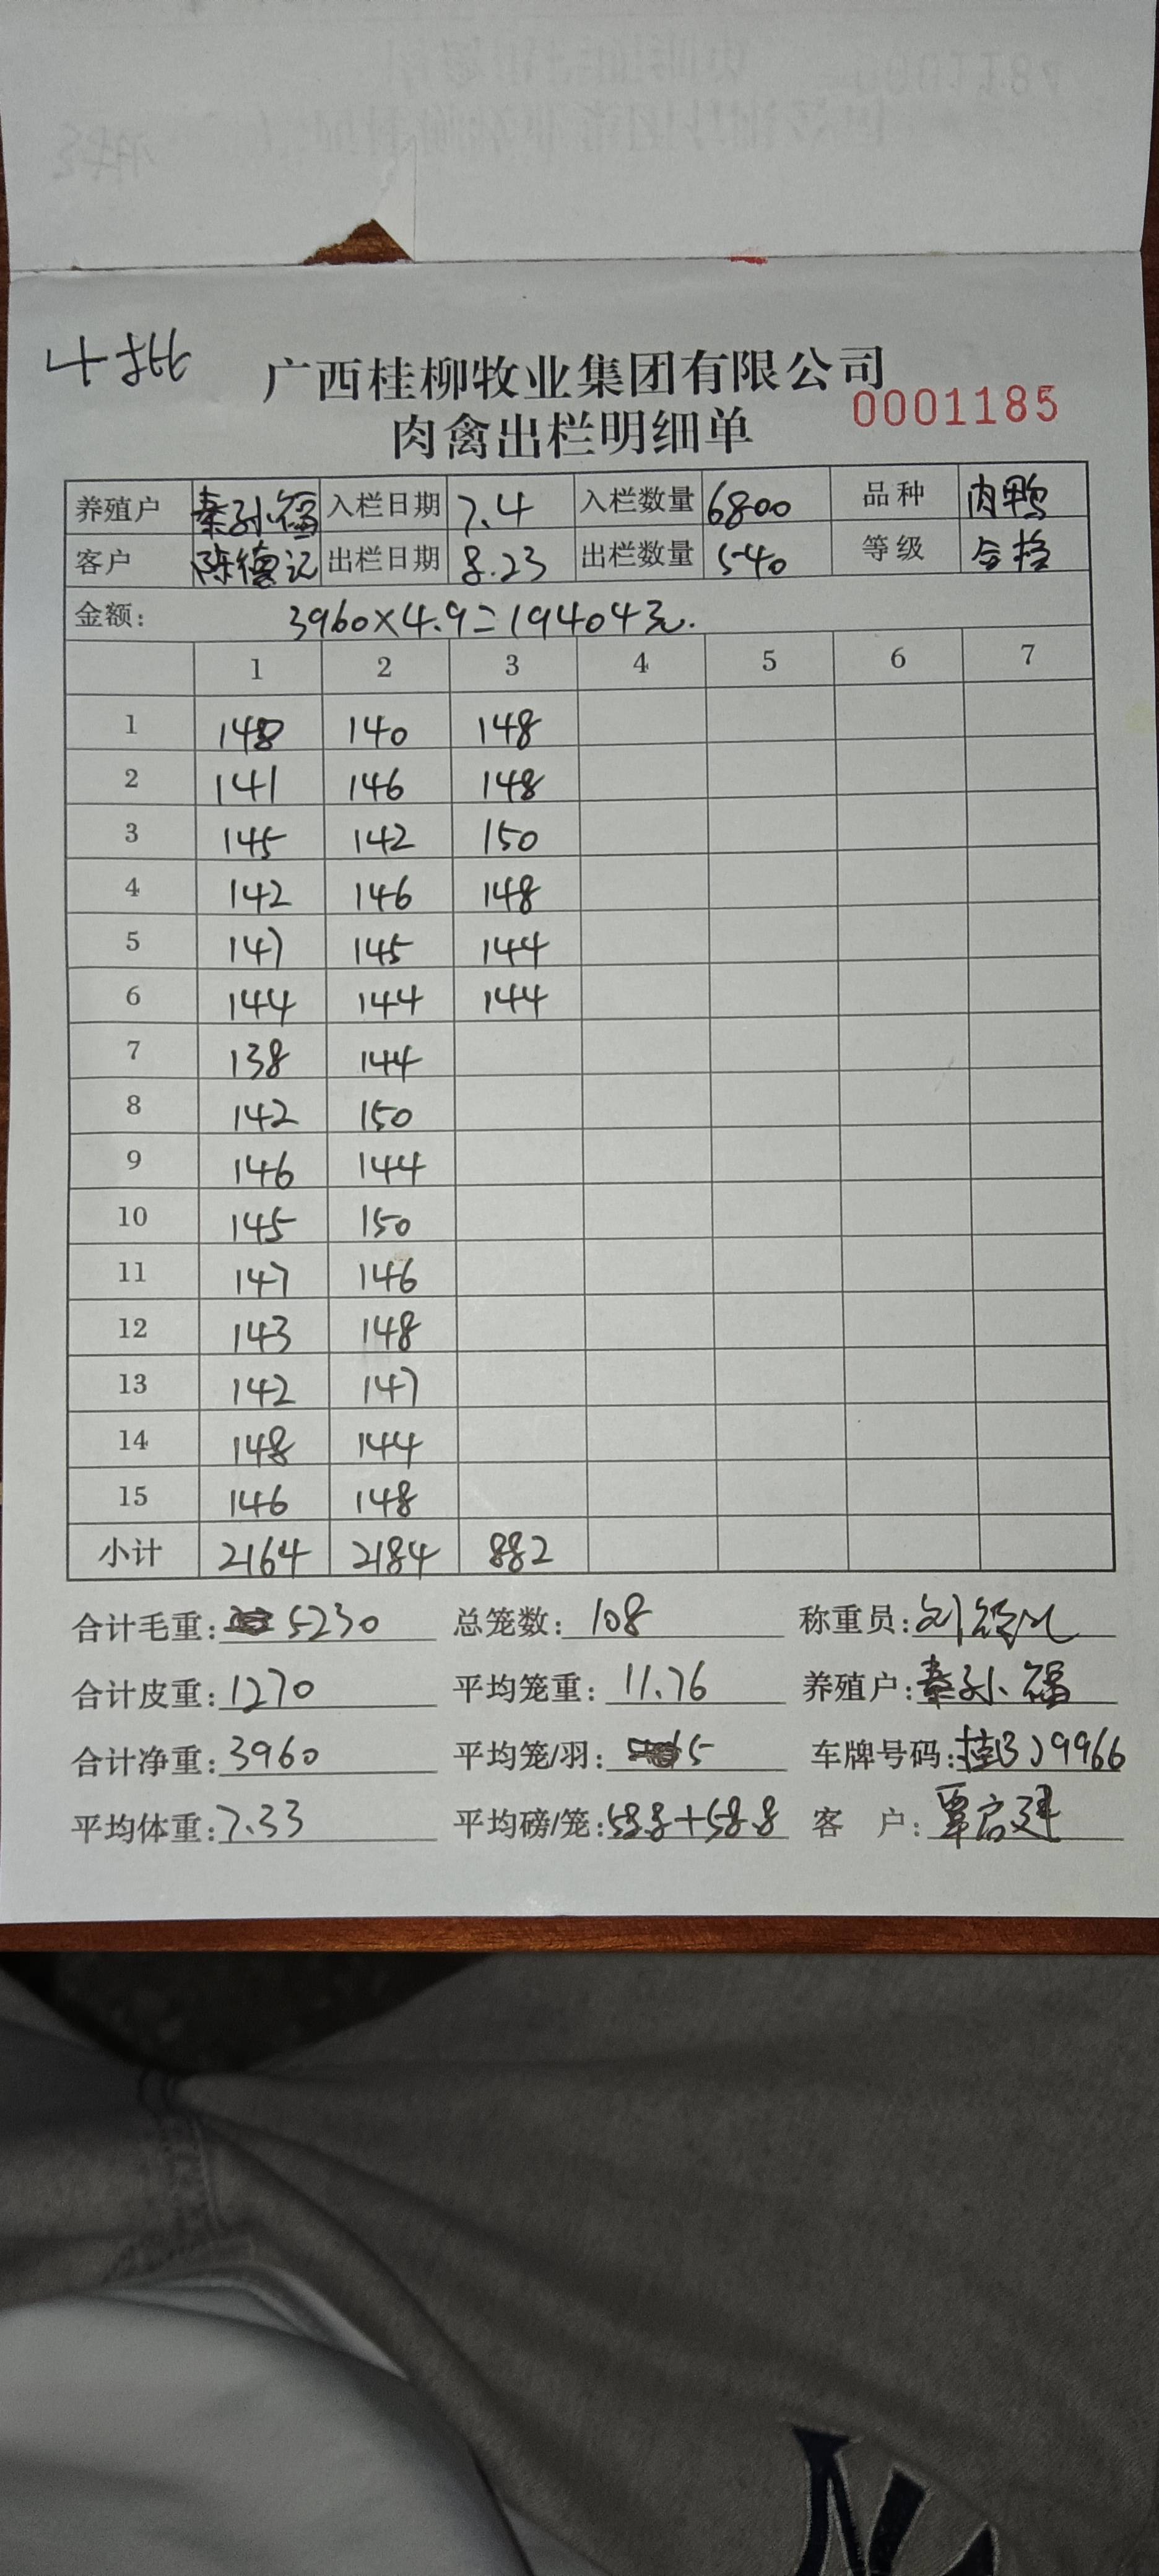 4批
广西桂柳牧业集团有限公司
肉禽出栏明细单
0001185
养殖户 秦孙福 入栏日期 7.4 入栏数量 6800 品种 肉鸭
客户 陈德记 出栏日期 8.23 出栏数量 540 等级 合格
金额： 3960×4.9=19404元.
1 2 3 4 5 6 7
1 148 140 148
2 141 146 148
3 145 142 150
4 142 146 148
5 147 145 144
6 144 144 144
7 138 144
8 142 150
9 146 144
10 145 150
11 147 146
12 143 148
13 142 147
14 148 144
15 146 148
小计 2164 2184 882
合计毛重: 5230 总笼数: 108 称重员: 刘
合计皮重: 1270 平均笼重: 11.76 养殖户: 秦孙福
合计净重: 3960 平均笼/羽: 5 车牌号码: 桂 9966
平均体重: 7.33 平均磅/笼: 58.8+58.8 客户: 覃启建